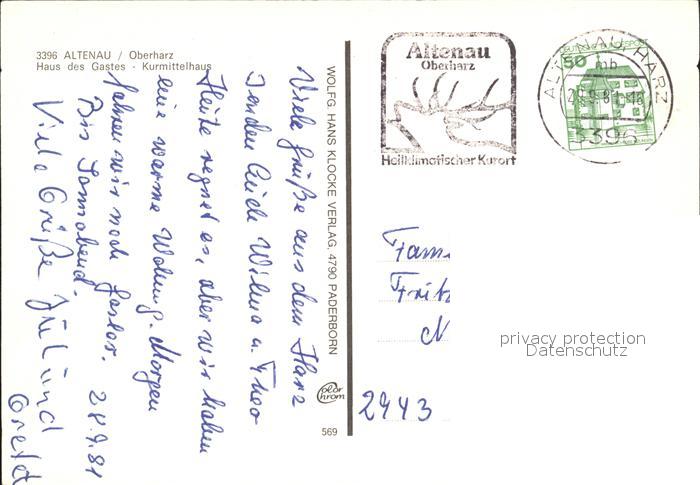 3396 ALTENAU / Oberharz
Haus des Gastes - Kurmittelhaus
Viele Grüße aus dem Harz
senden Euch Wilma u. Theo
Heute regnet es, aber wir haben
eine warme Wohng. Morgen
fahren wir nach Goslar.
Bis Sonnabend. 28.9.81
Viele Grüße
und
Gretel
WOLFG. HANS KLOCKE VERLAG, 4790 PADERBORN
569
Altenau
Oberharz
Heilklimatischer Kurort
ALTENAU, HARZ
3396
50
Fam.
Fritz
N
2943
privacy protection
Datenschutz